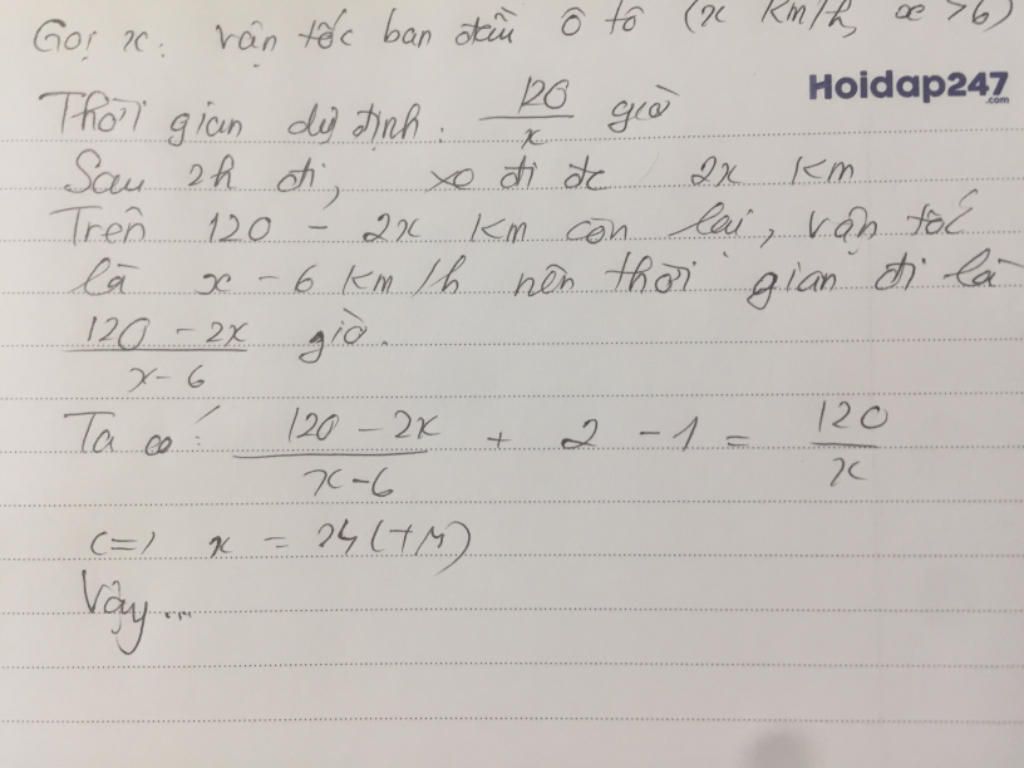 Gọi x: vận tốc ban đầu ô tô (x km/h, x > 6)
Hoidap247
.com
Thời gian dự định: 120/x giờ
Sau 2h đi, xe đi đc 2x km
Trên 120 - 2x km còn lại, vận tốc
là x - 6 km/h nên thời gian đi là
120 - 2x / x - 6 giờ.
Ta có: 120 - 2x / x - 6 + 2 - 1 = 120 / x
<=> x = 24 (TM)
Vậy...